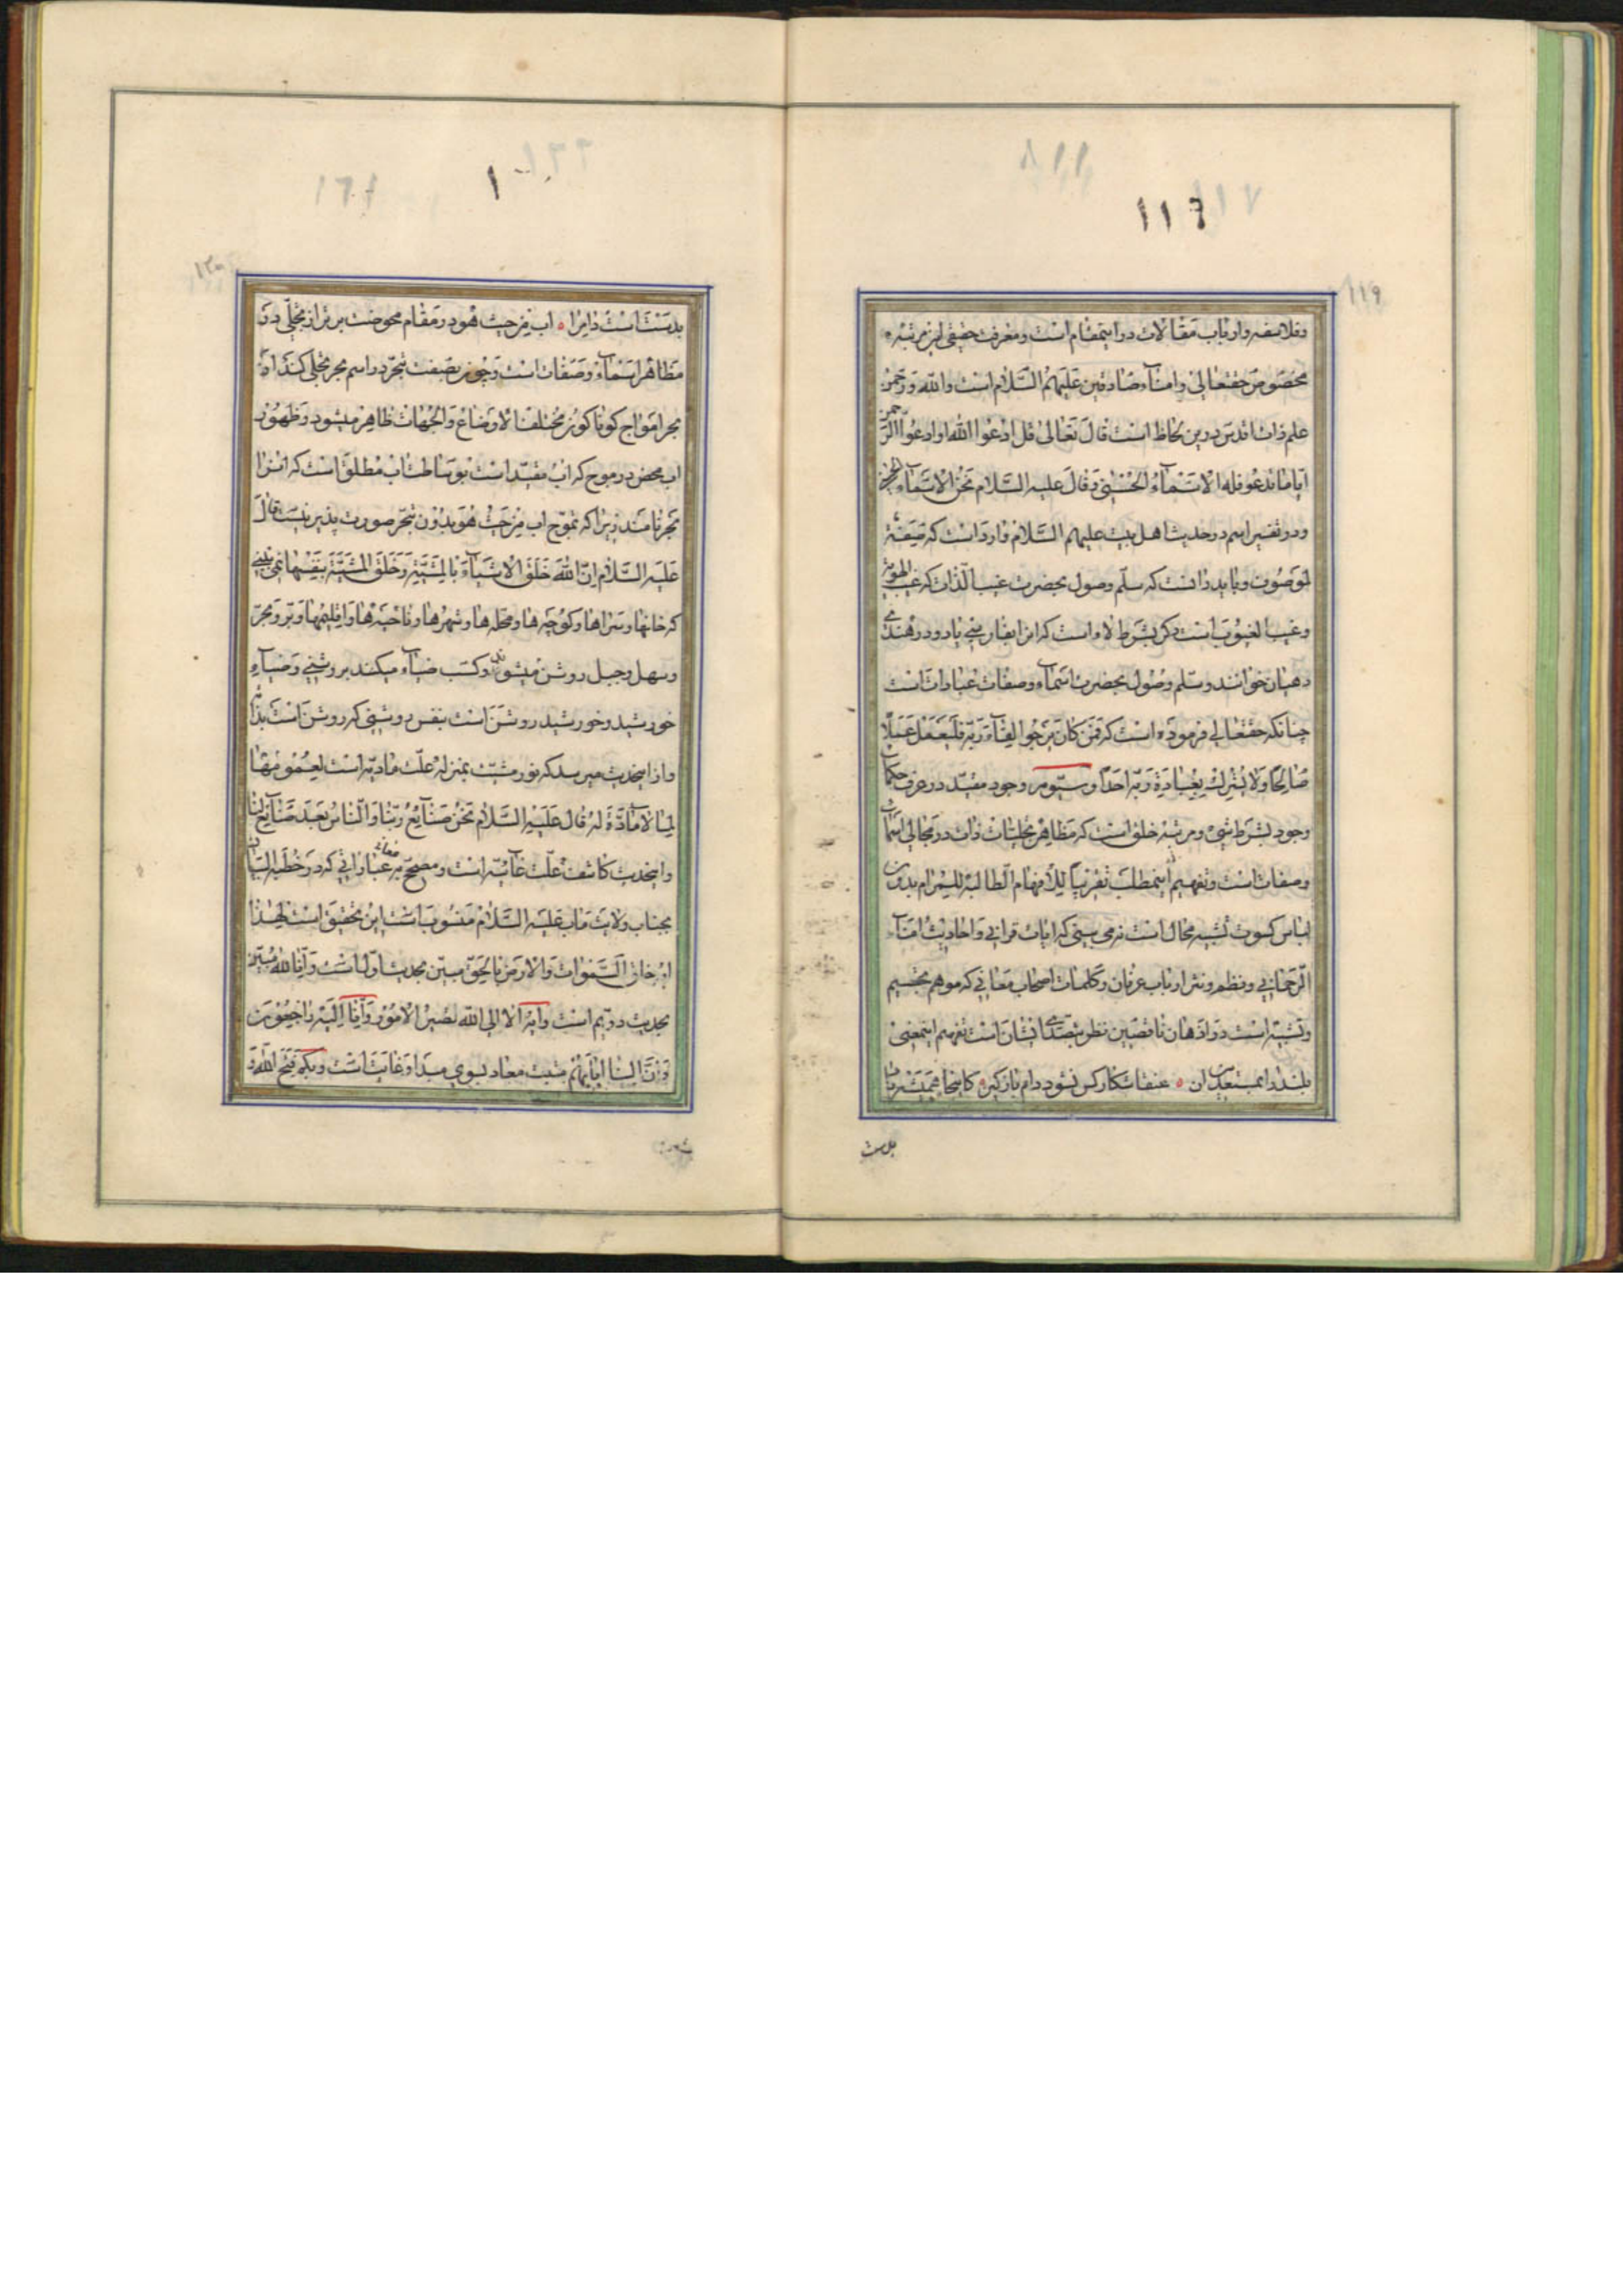 ١١٩
وفلاسفه وارباب مقالات در اینمقام است ومعرفت حقیقی این مرتبه
مخصوص حقتعالی وامناء صادقین علیهم السلام است والله ورحمن
علم ذات اقدس درین لحاظ است قال تعالی قل ادعوا الله او ادعوا الرحمن
ایاما تدعو فله الاسماء الحسنی وقال علیه السلام نحن الاسماء الحسنی
ودر تفسیر اسم در حدیث اهل بیت علیهم السلام وارد است که صفة
لموصوف وباید دانست که سلم وصول بحضرت غیب الذات که غیب الهویه
وغیب الغیوب است ذکر بشرط لا است که
دهیان خوانند وسلم وصول بحضرت اسماء وصفات عبادات است
چنانکه حقتعالی فرموده است که فمن کان یرجوا لقاء ربه فلیعمل عملا
صالحا ولا یشرک بعبادة ربه احدا وسیوم وجود مقید در عرف حکما
وجود بشرط شیء ومرتبه خلق است که مظاهر تجلیات ذات در مجالی اسماء
وصفات است وتفهیم اینمطلب تقریبا للافهام الطالبة للمرام بدون
لباس کسوت تشبیه محال است نه می بینی که ایات قرانی واحادیث امناء
الرحمانی ونظم ونثر ارباب عرفان وکلمات اصحاب معانی که موهم تجسیم
وتشبیه است در اذهان ناقصین نظر بتصدی انشان است تفهیم اینمعنی
بلند را بمستعدین ان ه عنقا شکار کس نشود دام بازگیر ه کاینجا همیشه باد
بدست است
١٢٠
بدست است دام را ه اب من حیث هو در مقام محوضت برتر از تجلی در
مظاهر اسماء وصفات است وچون بصفت تبحر در اسم بحر تجلی کند از
بحر امواج کوناکون مختلف الاوضاع والجهات ظاهر میشود وظهور
اب محض در موج که اب مقید است بوساطت اب مطلق است که انرا
بحر نامند زیرا که تموج اب من حیث هو بدون تبحر صورت پذیر نیست قال
علیه السلام ان الله خلق الاشیاء بالمشیة وخلق المشیة بنفسها نمی بینی
که خانها وسراها وکوچه ها ومحله ها وشهرها وناحیه ها واقلیمها وبر وبحر
وسهل وجبل روشن میشوند وکسب ضیاء میکند بروشنی وضیاء
خورشید وخورشید روشن است بنفس روشنی که روشن است بذاته
واز اینحدیث میرسد که نور مشیت بمنزله علت مادیه است لعمومها
لما لا مادة له قال علیه السلام نحن صنائع ربنا والناس بعد صنائع لنا
واینحدیث کاشف علت غائیه است ومصحح عباراتی که در خطبة البیان
بجناب ولایت ماب علیه السلام منسوب است این تحقیق است لهذا
خلق السموات والارض بالحق مبین بحدیث اول است وانا لله مبین
بحدیث دویم است وایه الا الی الله تصیر الامور وانا الیه راجعون
وان الینا ایابهم مثبت معاد بسوی مبدا وغایت است وبکم فتح الله و